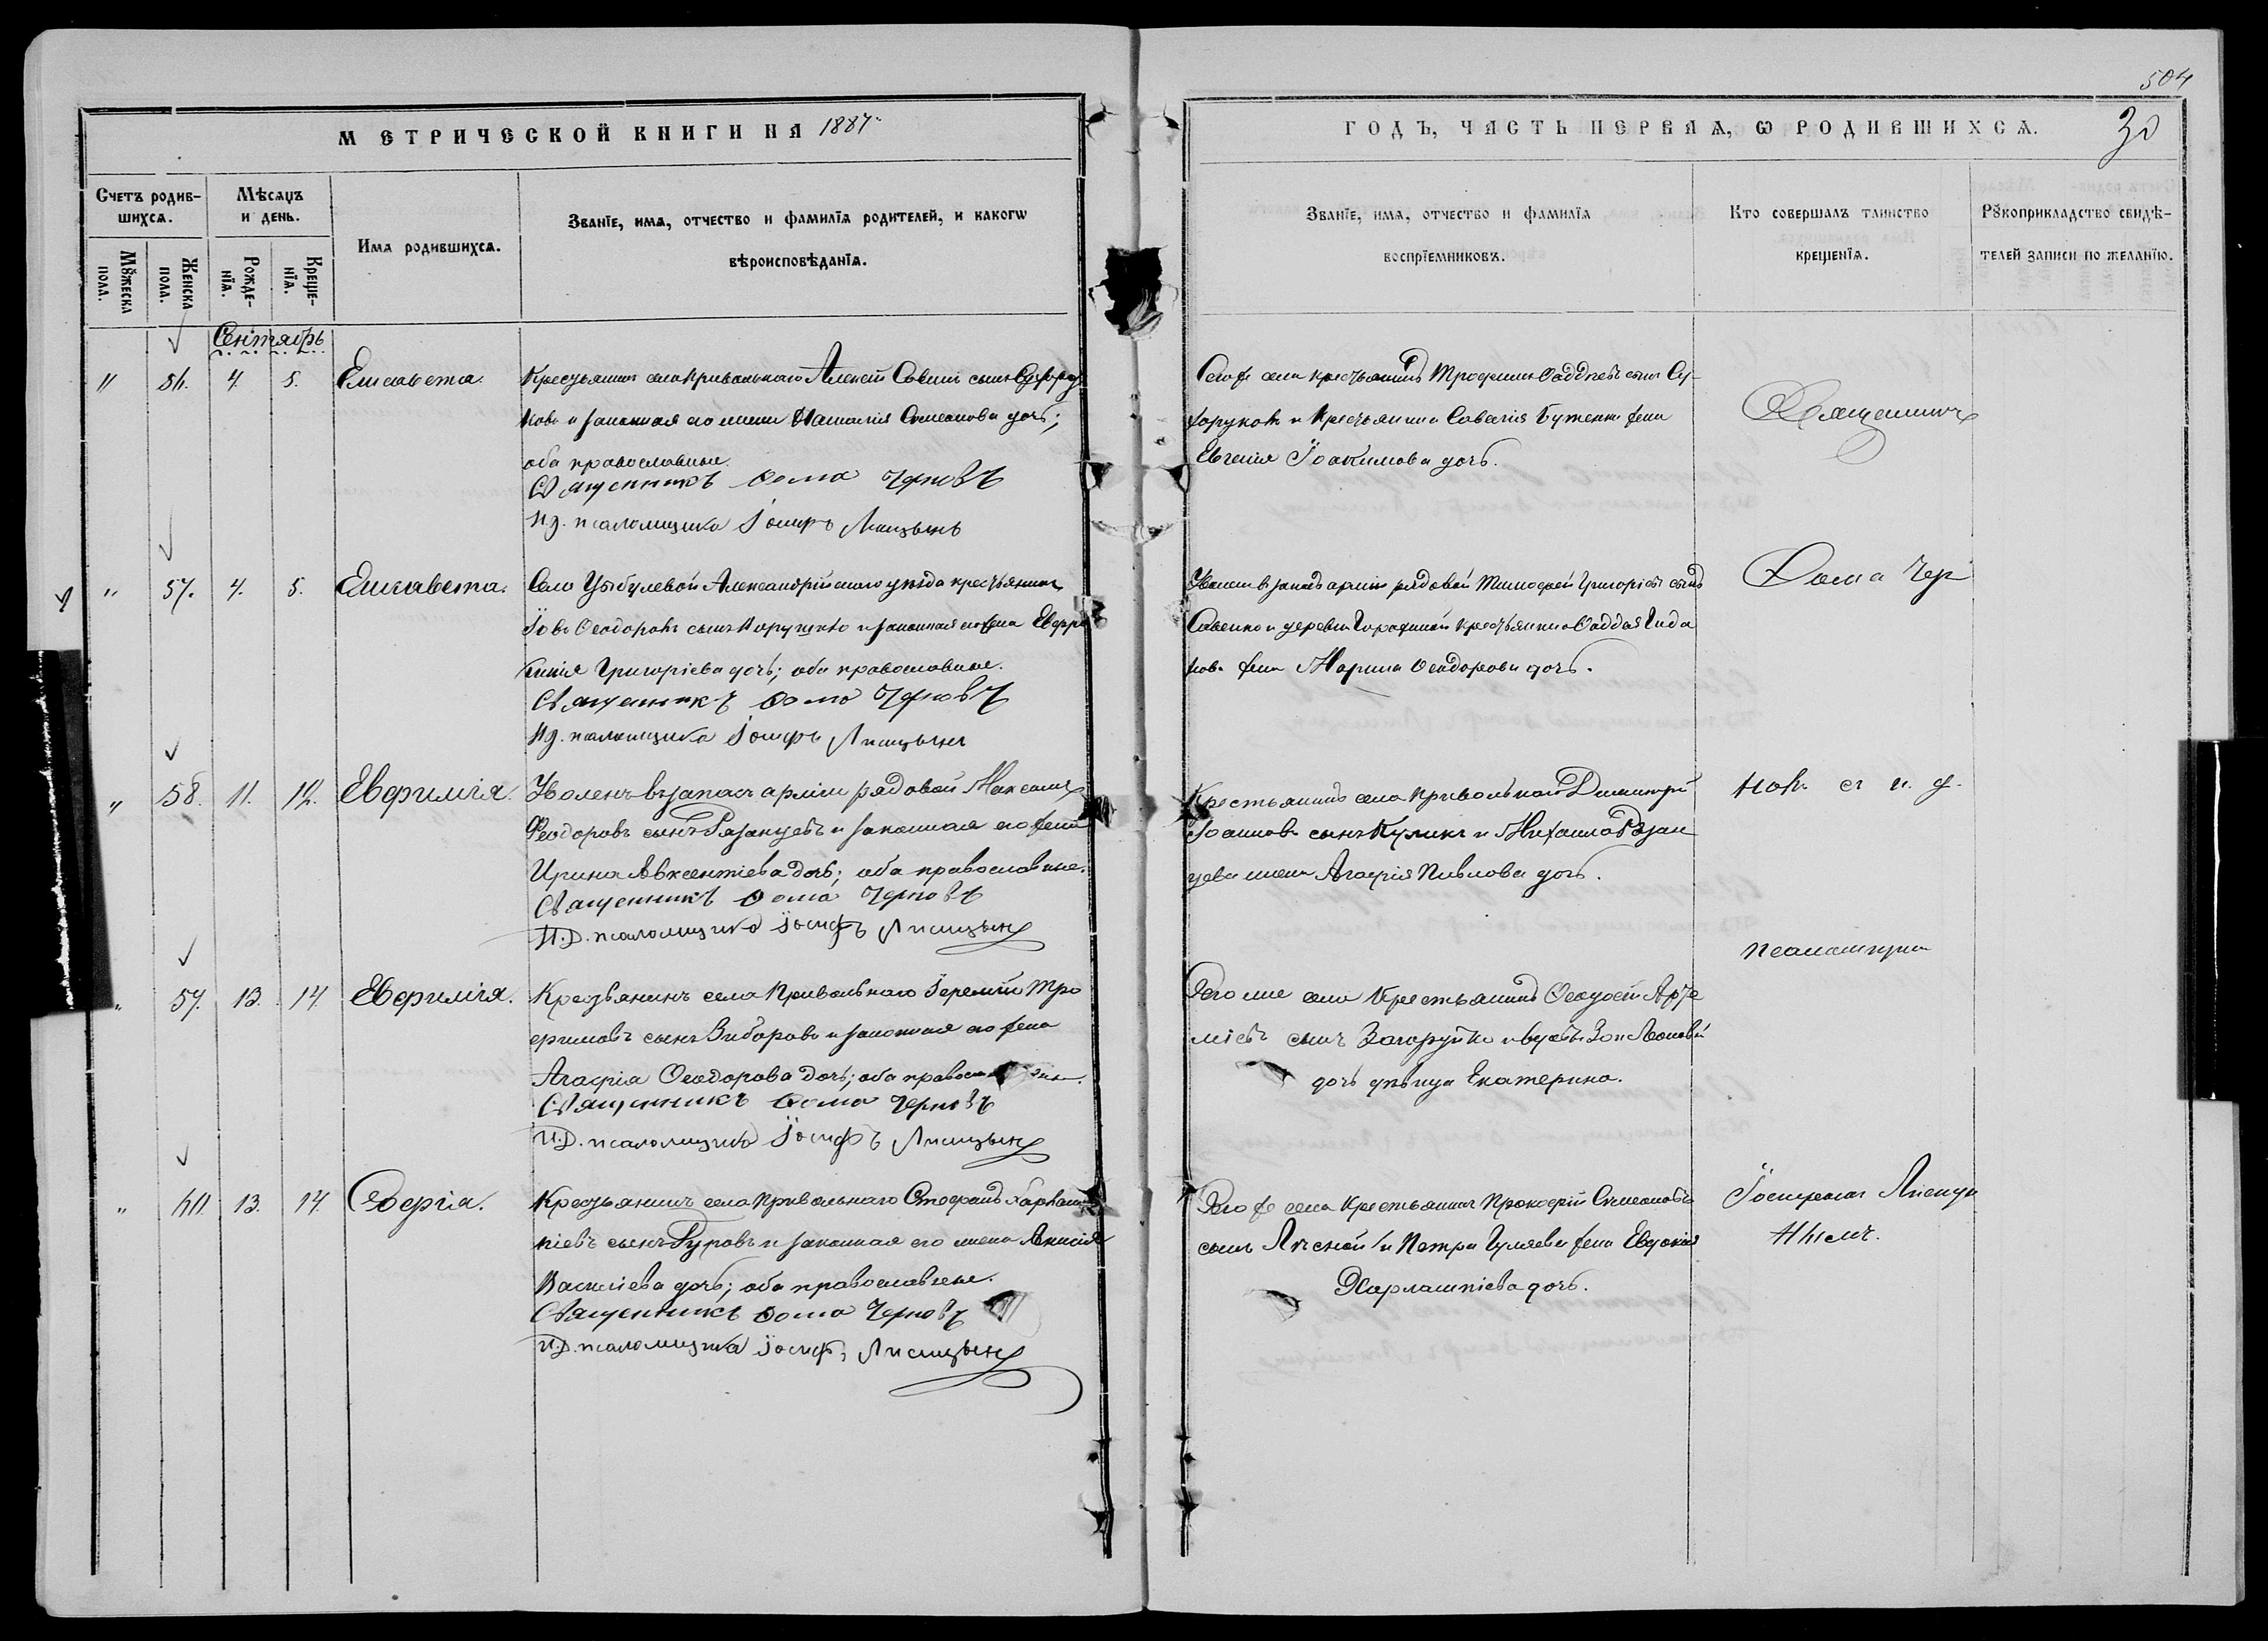 504
МЕТРИЧЕСКОЙ КНИГИ НА 1887
ГОДЪ, ЧАСТЬ ПЕРВАЯ, Ѡ РОДИВШИХСѦ.
30
Счетъ родив-
шихсѧ.
Мѣсѧцъ
и день.
Имѧ родившихсѧ.
Званїе, имѧ, отчество и фамилїѧ родителей, и какогѡ
вѣроисповѣданїѧ.
Мꙋжеска
пола.
Женска
пола.
Рожде-
нїѧ.
Креще-
нїѧ.
Званїе, имѧ, отчество и фамилїѧ
воспрїемниковъ.
Кто совершалъ таинство
крещенїѧ.
Рꙋкоприкладство свидѣ-
телей записи по желанїю.
Сентябрь
" 56. 4. 5. Елисавета. Крестьянинъ села Привольнаго Алексѣй Саввинъ сынъ
и законная его жена Наталія Симеонова дочь;
оба православные.
Священникъ Ѳома Черновъ
И.д. псаломщика Іосифъ Лисицынъ
Того же села крестьянинъ Трофимъ Ѳаддѣевъ сынъ Су-
хоруковъ и крестьянина Савелія Бутенки жена
Евгенія Іоакимова дочь.
Священникъ
" 57. 4. 5. Елисавета. Села Цыбулевой Александрійскаго уѣзда крестьянинъ
Іовъ Ѳеодоровъ сынъ и законная его жена Евфро
синія Григоріева дочь; оба православные.
Священникъ Ѳома Черновъ
И.д. псаломщика Іосифъ Лисицынъ
Уволен. в запасъ арміи рядовой Тимоѳей Григоріевъ сынъ
Савенко и деревни крестьянина Ѳаддея Гида
кова жена Марина Ѳеодорова дочь.
Ѳома Чер
" 58. 11. 12. Евфимія. Уволенъ въ запасъ арміи рядовой Максимъ
Ѳеодоровъ сынъ Рязанцевъ и законная его жена
Ирина Авксентіева дочь; оба православные.
Священникъ Ѳома Черновъ
И.Д. псаломщика Іосифъ Лисицынъ
Крестьянинъ села Привольнаго Димитрій
Іоанновъ сынъ Куликъ и Михаила Рязан
цева жена Агафія Павлова дочь.
новъ съ и. д.
псаломщика
" 59. 13. 14. Евфимія. Крестьянинъ села Привольнаго Іеремій Тро
фимовъ сынъ Зибаровъ и законная его жена
Агафія Ѳеодорова дочь; оба православные.
Священникъ Ѳома Черновъ
И.Д. псаломщика Іосифъ Лисицынъ
Того же села крестьянинъ Ѳеодосій Арте
міевъ сынъ Загоруйко и вдовы Зои Леоновой
дочь дѣвица Екатерина.
" 60. 13. 14. Софія. Крестьянинъ села Привольнаго Стефанъ Харлам
піевъ сынъ Гуровъ и законная его жена Анисія
Василіева дочь; оба православные.
Священникъ Ѳома Черновъ
И.Д. псаломщика Іосифъ Лисицынъ
Того же села крестьянинъ Прокофій Симеоновъ
сынъ Лѣсной и Петра Гуляева жена Евдокія
Харлампіева дочь.
Іосифомъ Лисиц
ынымъ.